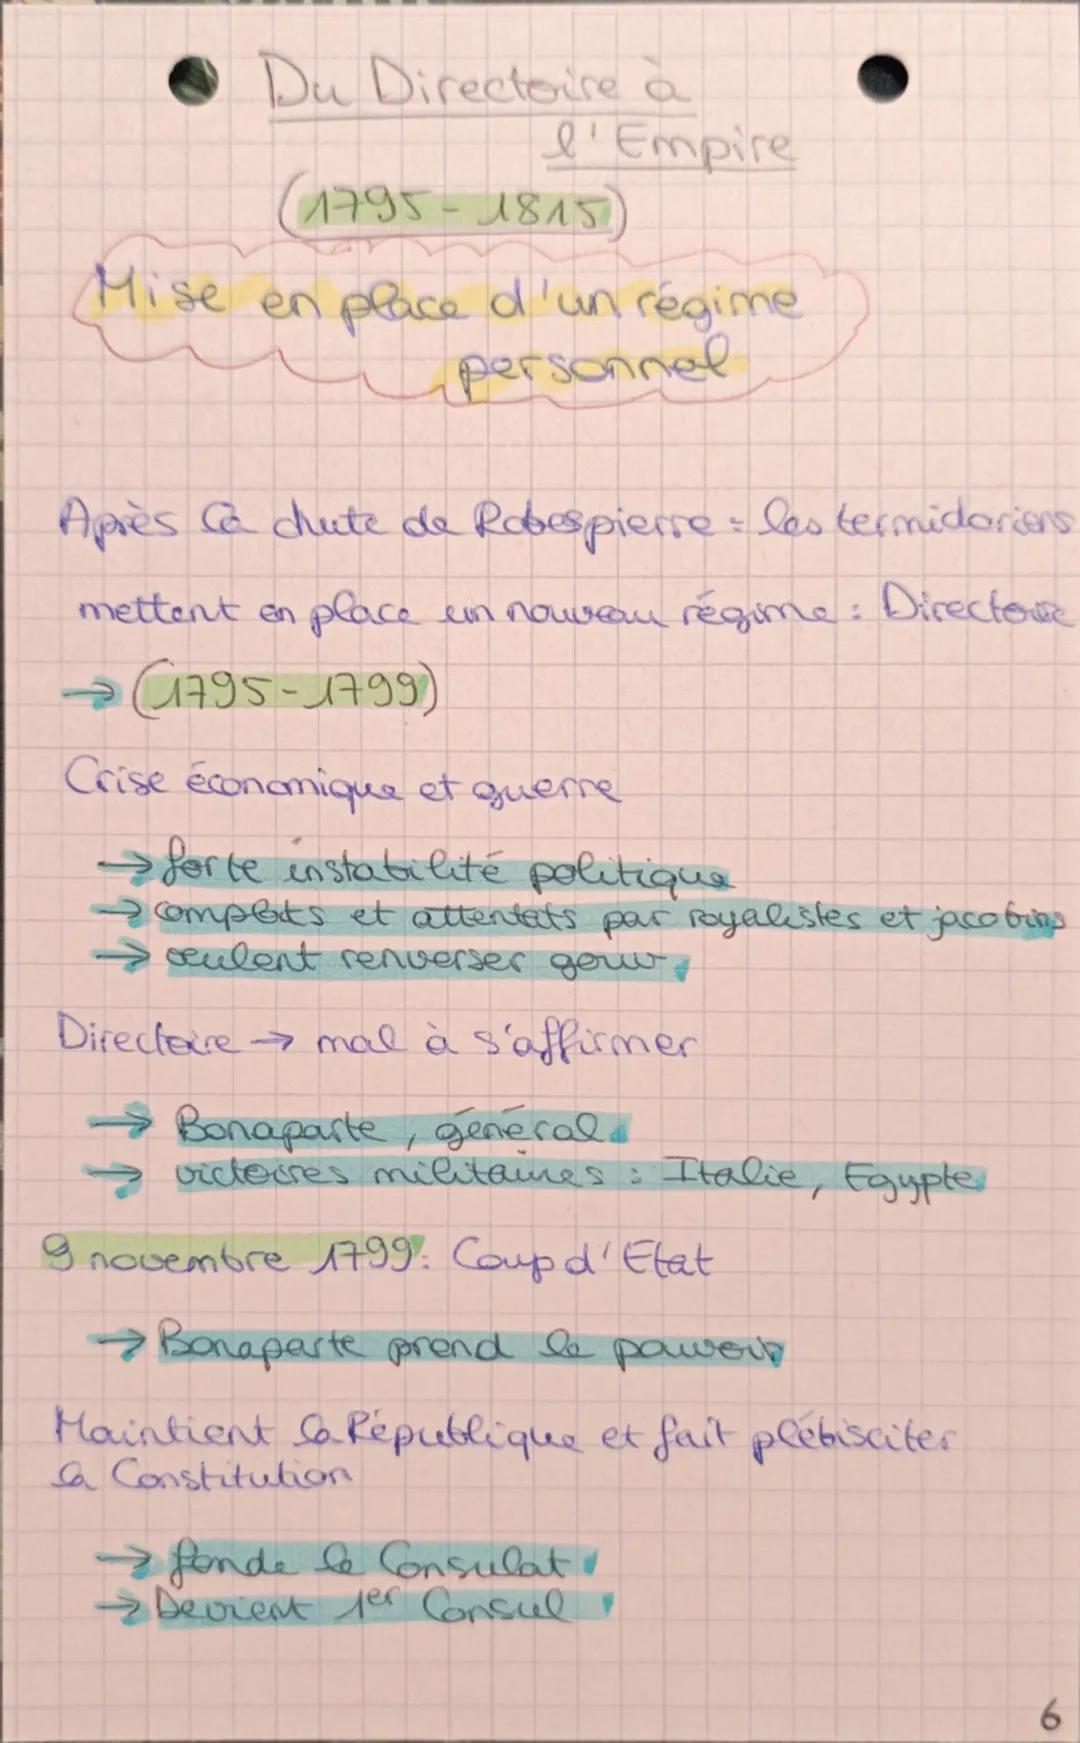 Du Directoire à
l'Empire
(1795 - 1815)
Mise en place d'un régime
personnel
Après la chute de Robespierre = les termidoriens
mettent en place un nouveau régime : Directoire
→ (1795-1799)
Crise économique et guerre
→ forte instabilité politique
→ complots et attentats par royalistes et jacobins
→ veulent renverser gouv
Directoire → mal à s'affirmer
→ Bonaparte, général
→ victoires militaires : Italie, Egypte
9 novembre 1799 : Coup d'Etat
→ Bonaparte prend le pouvoir
Maintient la République et fait plébisciter
la Constitution
→ fonde le Consulat
→ Devient 1er Consul
6